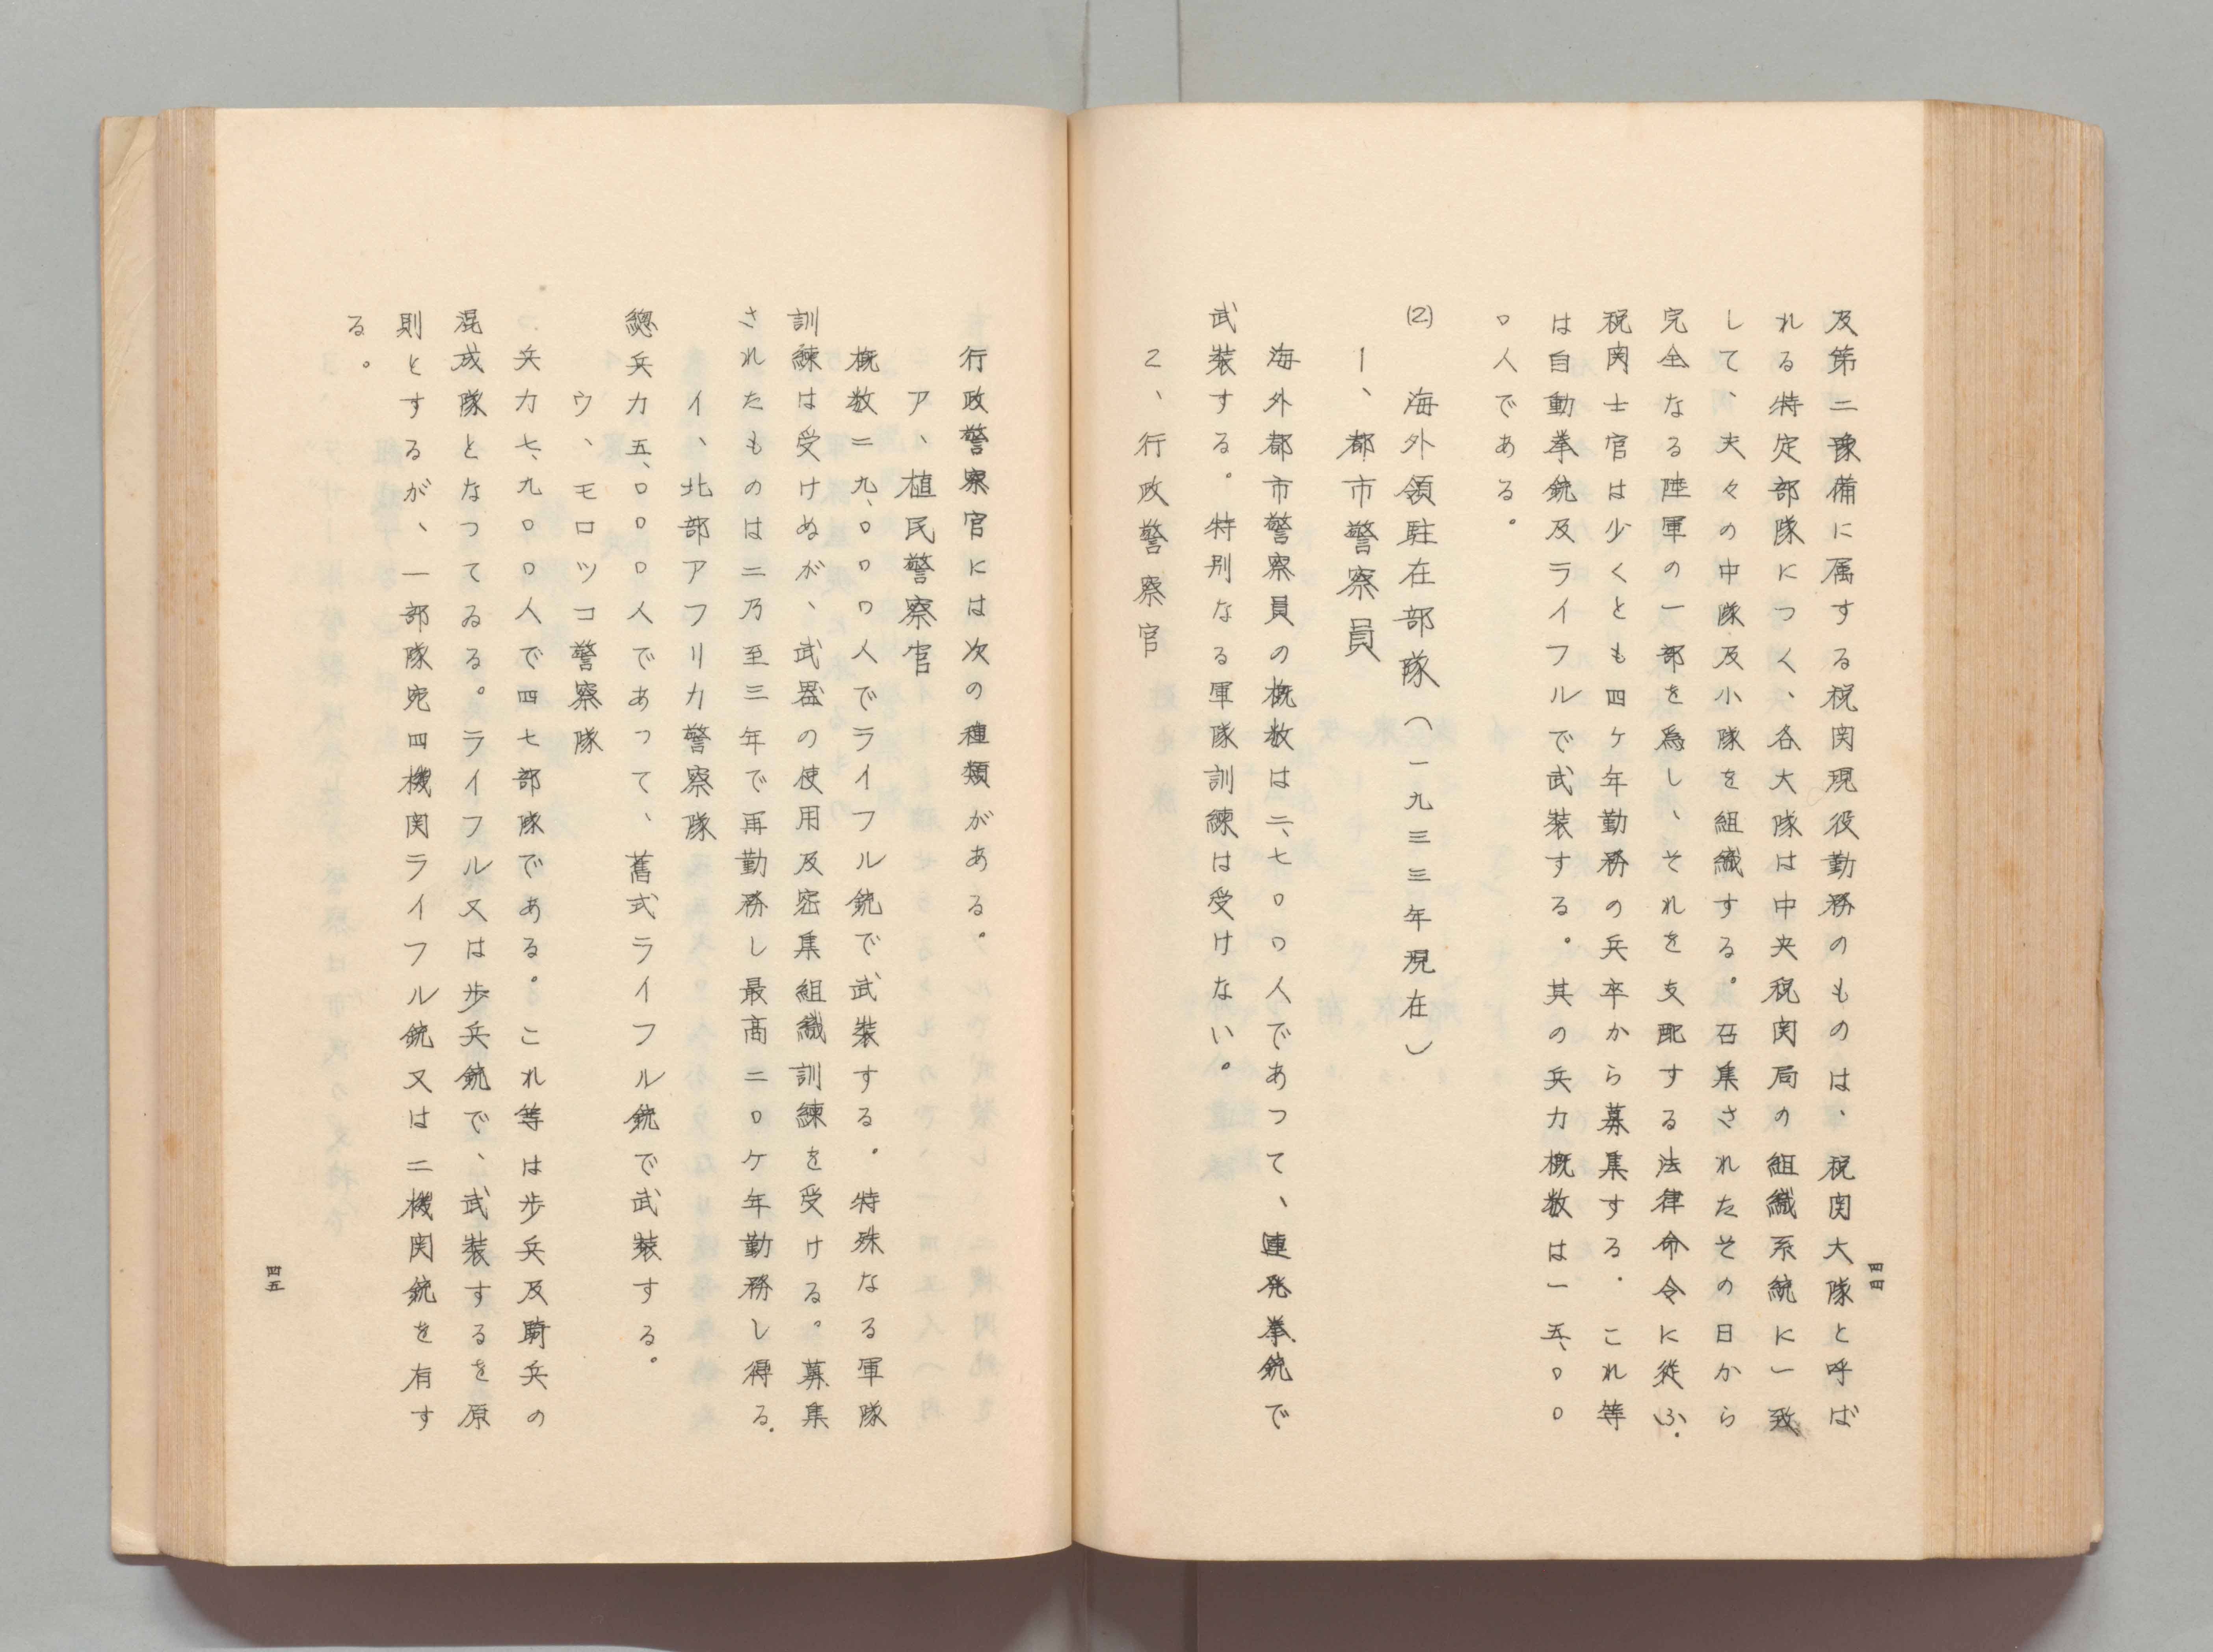 及第二豫備に属する税関現役勤務のものは、税関大隊と呼ば
れる特定部隊につく、各大隊は中央税関局の組織系統に一致
して、夫々の中隊及小隊を組織する。召集されたその日から
完全なる陸軍の一部を為し、それを支配する法律命令に従ふ.
税関士官は少くとも四ケ年勤務の兵卒から募集する.これ等
は自動拳銃及ライフルで武装する。其の兵力概数は一五、〇〇
〇人である。
(2)　海外領駐在部隊(一九三三年現在)
1、都市警察員
海外都市警察員の概数は二、七〇〇人であつて、連発拳銃で
武装する。特別なる軍隊訓練は受けない。
2、行政警察官
四四
行政警察官には次の種類がある。
ア、植民警察官
概数二九、〇〇〇人でライフル銃で武装する.特殊なる軍隊
訓練は受けぬが、武器の使用及密集組織訓練を受ける。募集
されたものは二乃至三年で再勤務し最高二〇ケ年勤務し得る.
イ、北部アフリカ警察隊
總兵力五、〇〇〇人であって、舊式ライフル銃で武装する。
ウ、モロツコ警察隊
兵力七、九〇〇人で四七部隊である。これ等は歩兵及騎兵の
混成隊となつてゐる。ライフル又は歩兵銃で、武装するを原
則とするが、一部隊宛四機関ライフル銃又は二機関銃を有す
る。
四五